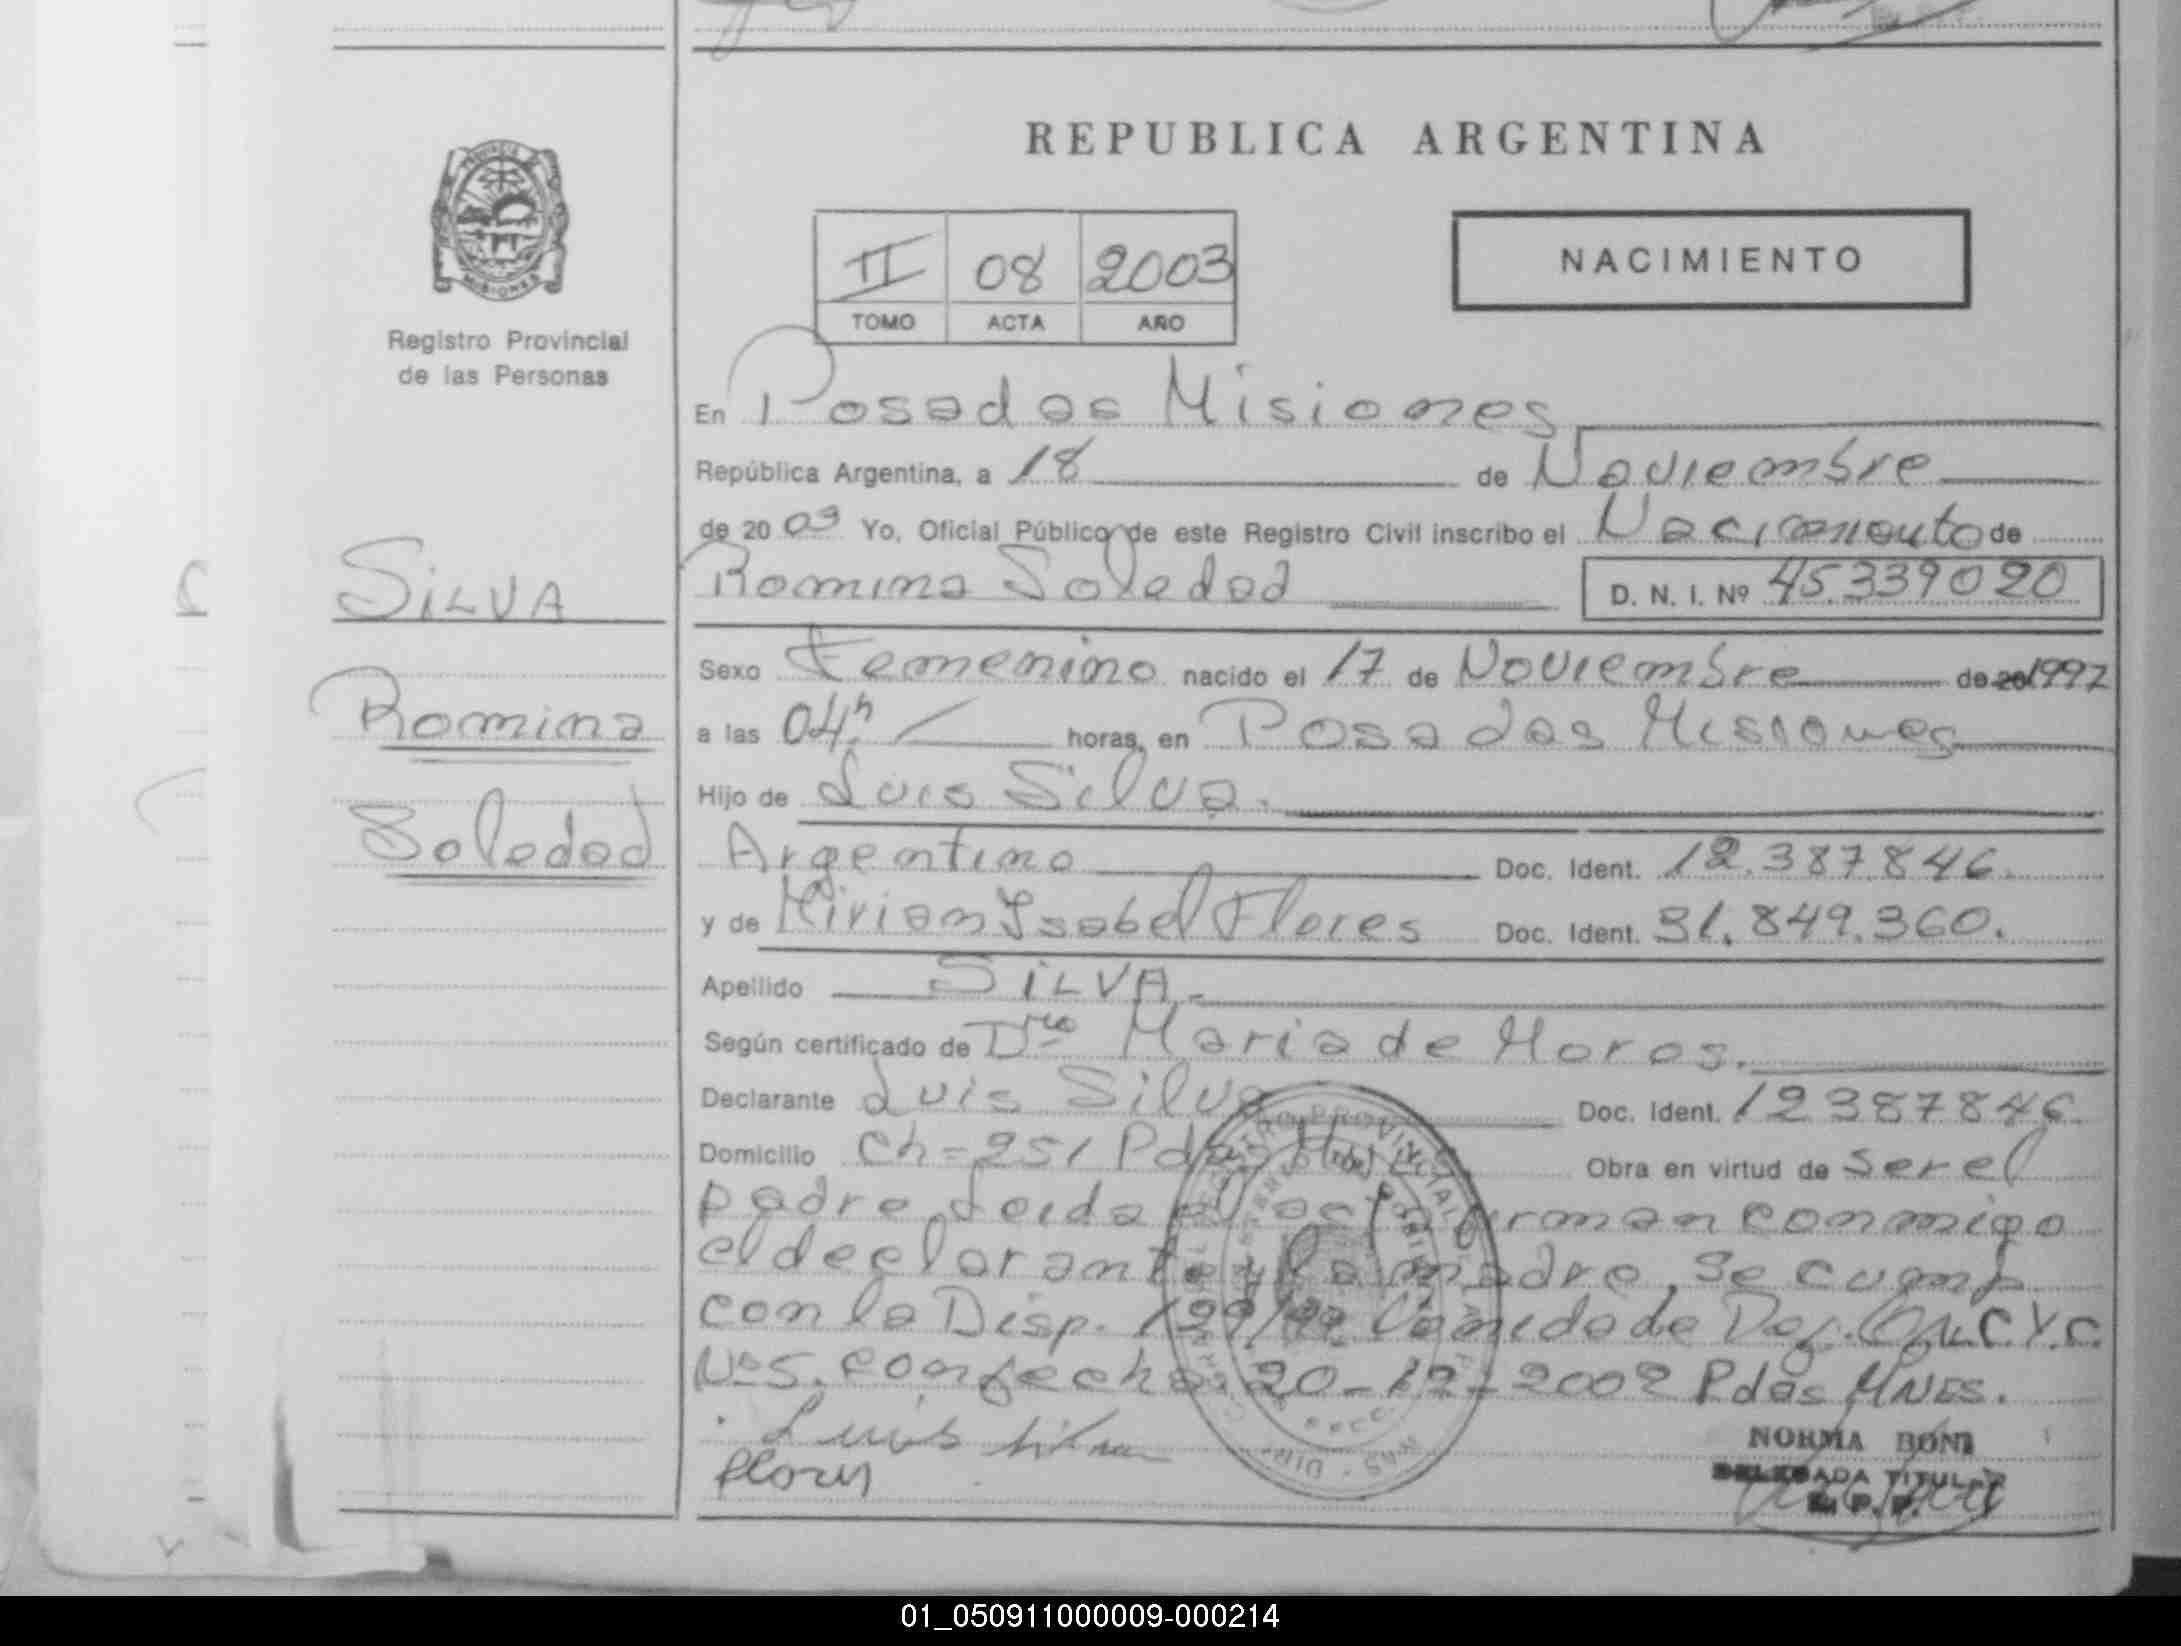 REPUBLICA ARGENTINA
PROVINCIA DE
MISIONES
Registro Provincial
de las Personas
II 08 2003
TOMO ACTA AÑO
NACIMIENTO
En Posadas Misiones
República Argentina, a 18 de Noviembre
de 20 03 Yo, Oficial Público de este Registro Civil inscribo el Nacimiento de
Romina Soledad D. N. I. Nº 45.339020
SILVA
Romina
Soledad
Sexo Femenino nacido el 17 de Noviembre de 20 1997
a las 04h. horas, en Posadas Misiones
Hijo de Luis Silva.
Argentino Doc. Ident. 12.387.846.
y de Miriam Ysabel Flores Doc. Ident. 31.849.360.
Apellido SILVA.-
Según certificado de Dra Maria de Moros.
Declarante Luis Silva Doc. Ident. 12387846.
Domicilio Ch=251 Pdas Mnes Obra en virtud de ser el
padre Leida el acta firman conmigo
el declarante y la madre, se cump
con la Disp. 199/92 de Def. C.Y.C.
Nº5. con fecha. 20-12-2002 Pdas MNES.
Luis Silva
flores
NORMA BONI
DELEGADA TITULAR
R.P.P.
01_050911000009-000214